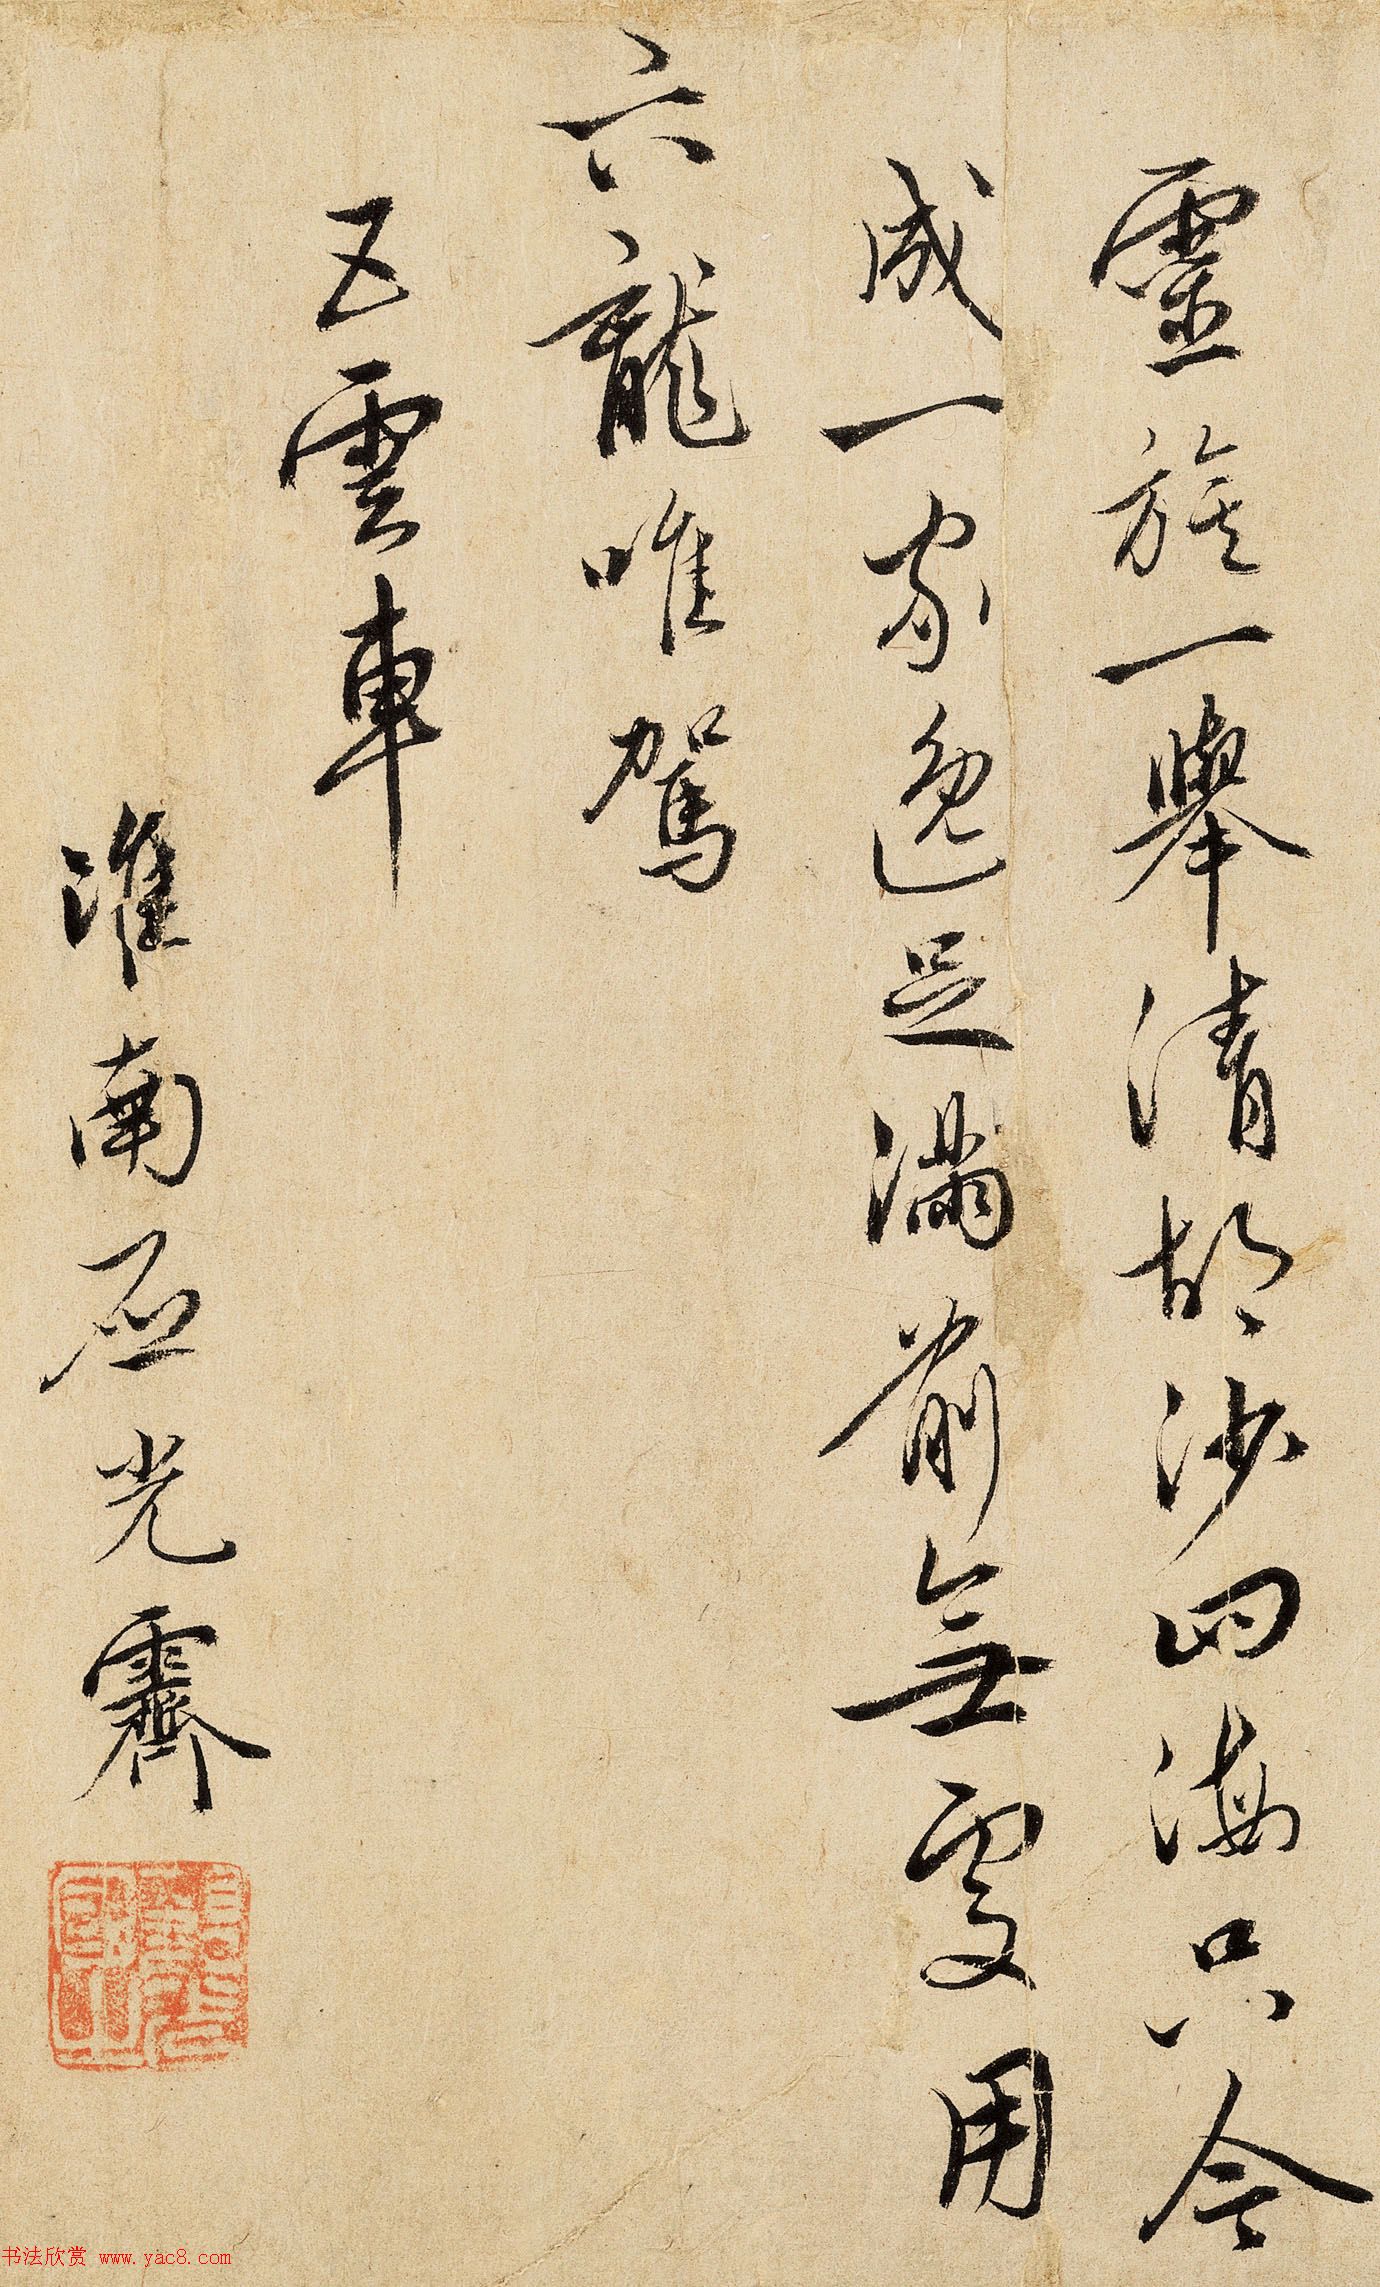 靈旗一舉清胡沙四海只今
成一家逸足滿前無處用
六龍唯駕
五雲車
淮南石光霽
书法欣赏 www.yac8.com